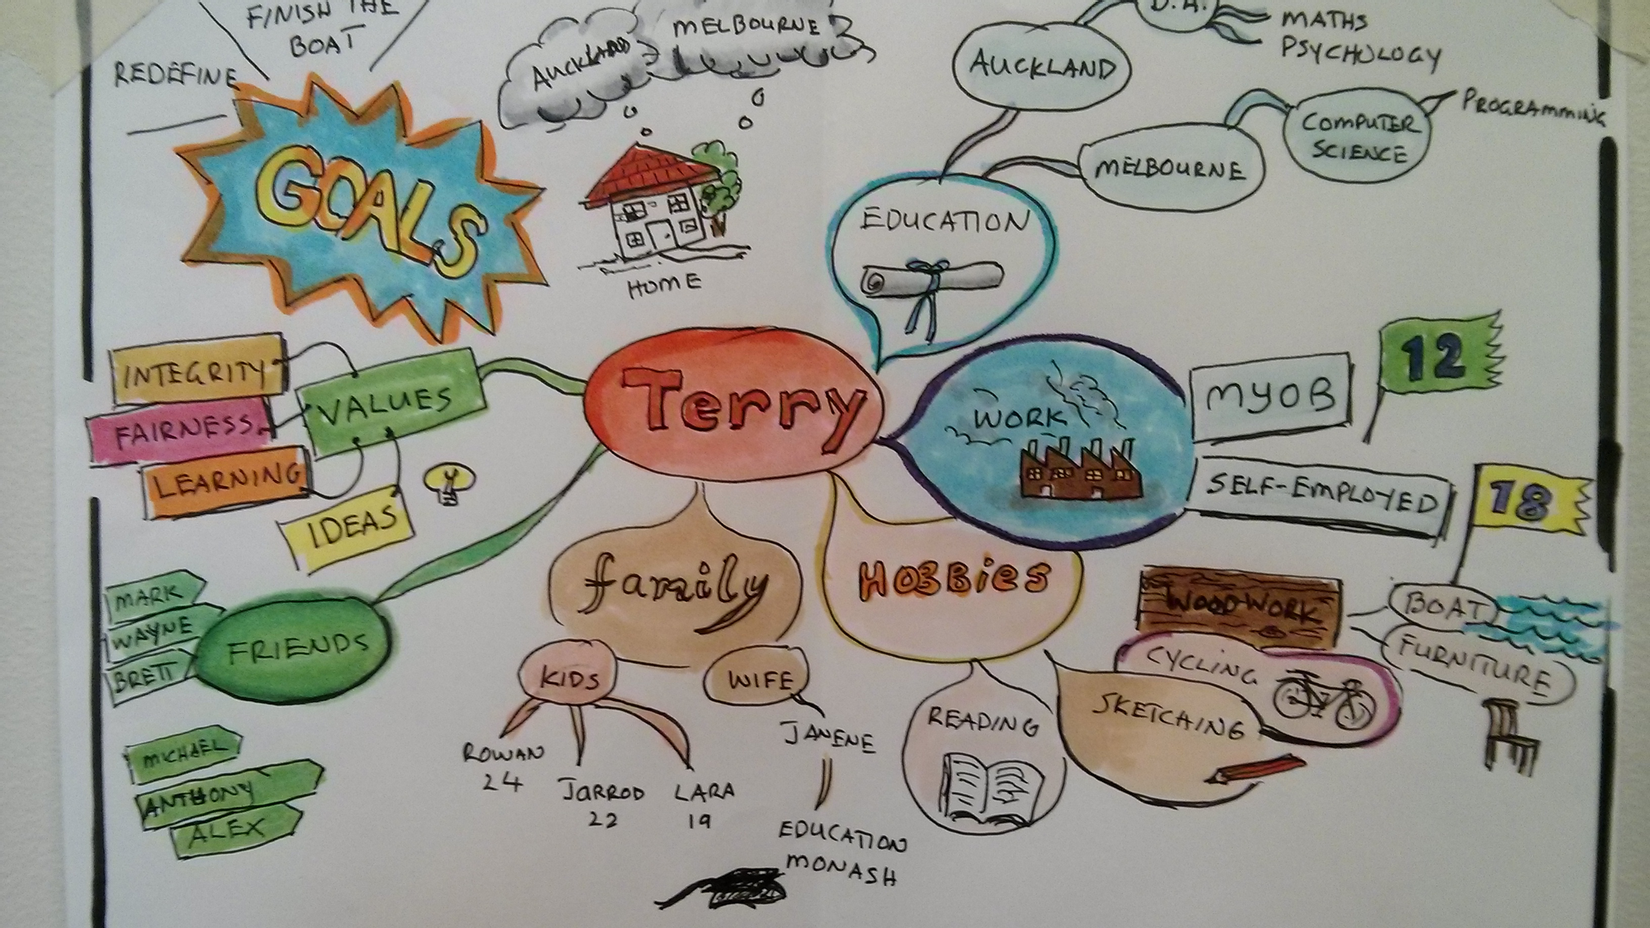 FINISH THE
BOAT
REDEFINE
GOALS
AUCKLAND
MELBOURNE
HOME
AUCKLAND
B.A.
MATHS
PSYCHOLOGY
MELBOURNE
COMPUTER
SCIENCE
PROGRAMMING
EDUCATION
INTEGRITY
FAIRNESS
LEARNING
IDEAS
VALUES
Terry
WORK
MYOB
12
SELF-EMPLOYED
18
FRIENDS
MARK
WAYNE
BRETT
MICHAEL
ANTHONY
ALEX
family
KIDS
ROWAN
24
JARROD
22
LARA
19
WIFE
JANENE
EDUCATION
MONASH
HOBBies
READING
SKETCHING
CYCLING
WOODWORK
BOAT
FURNITURE